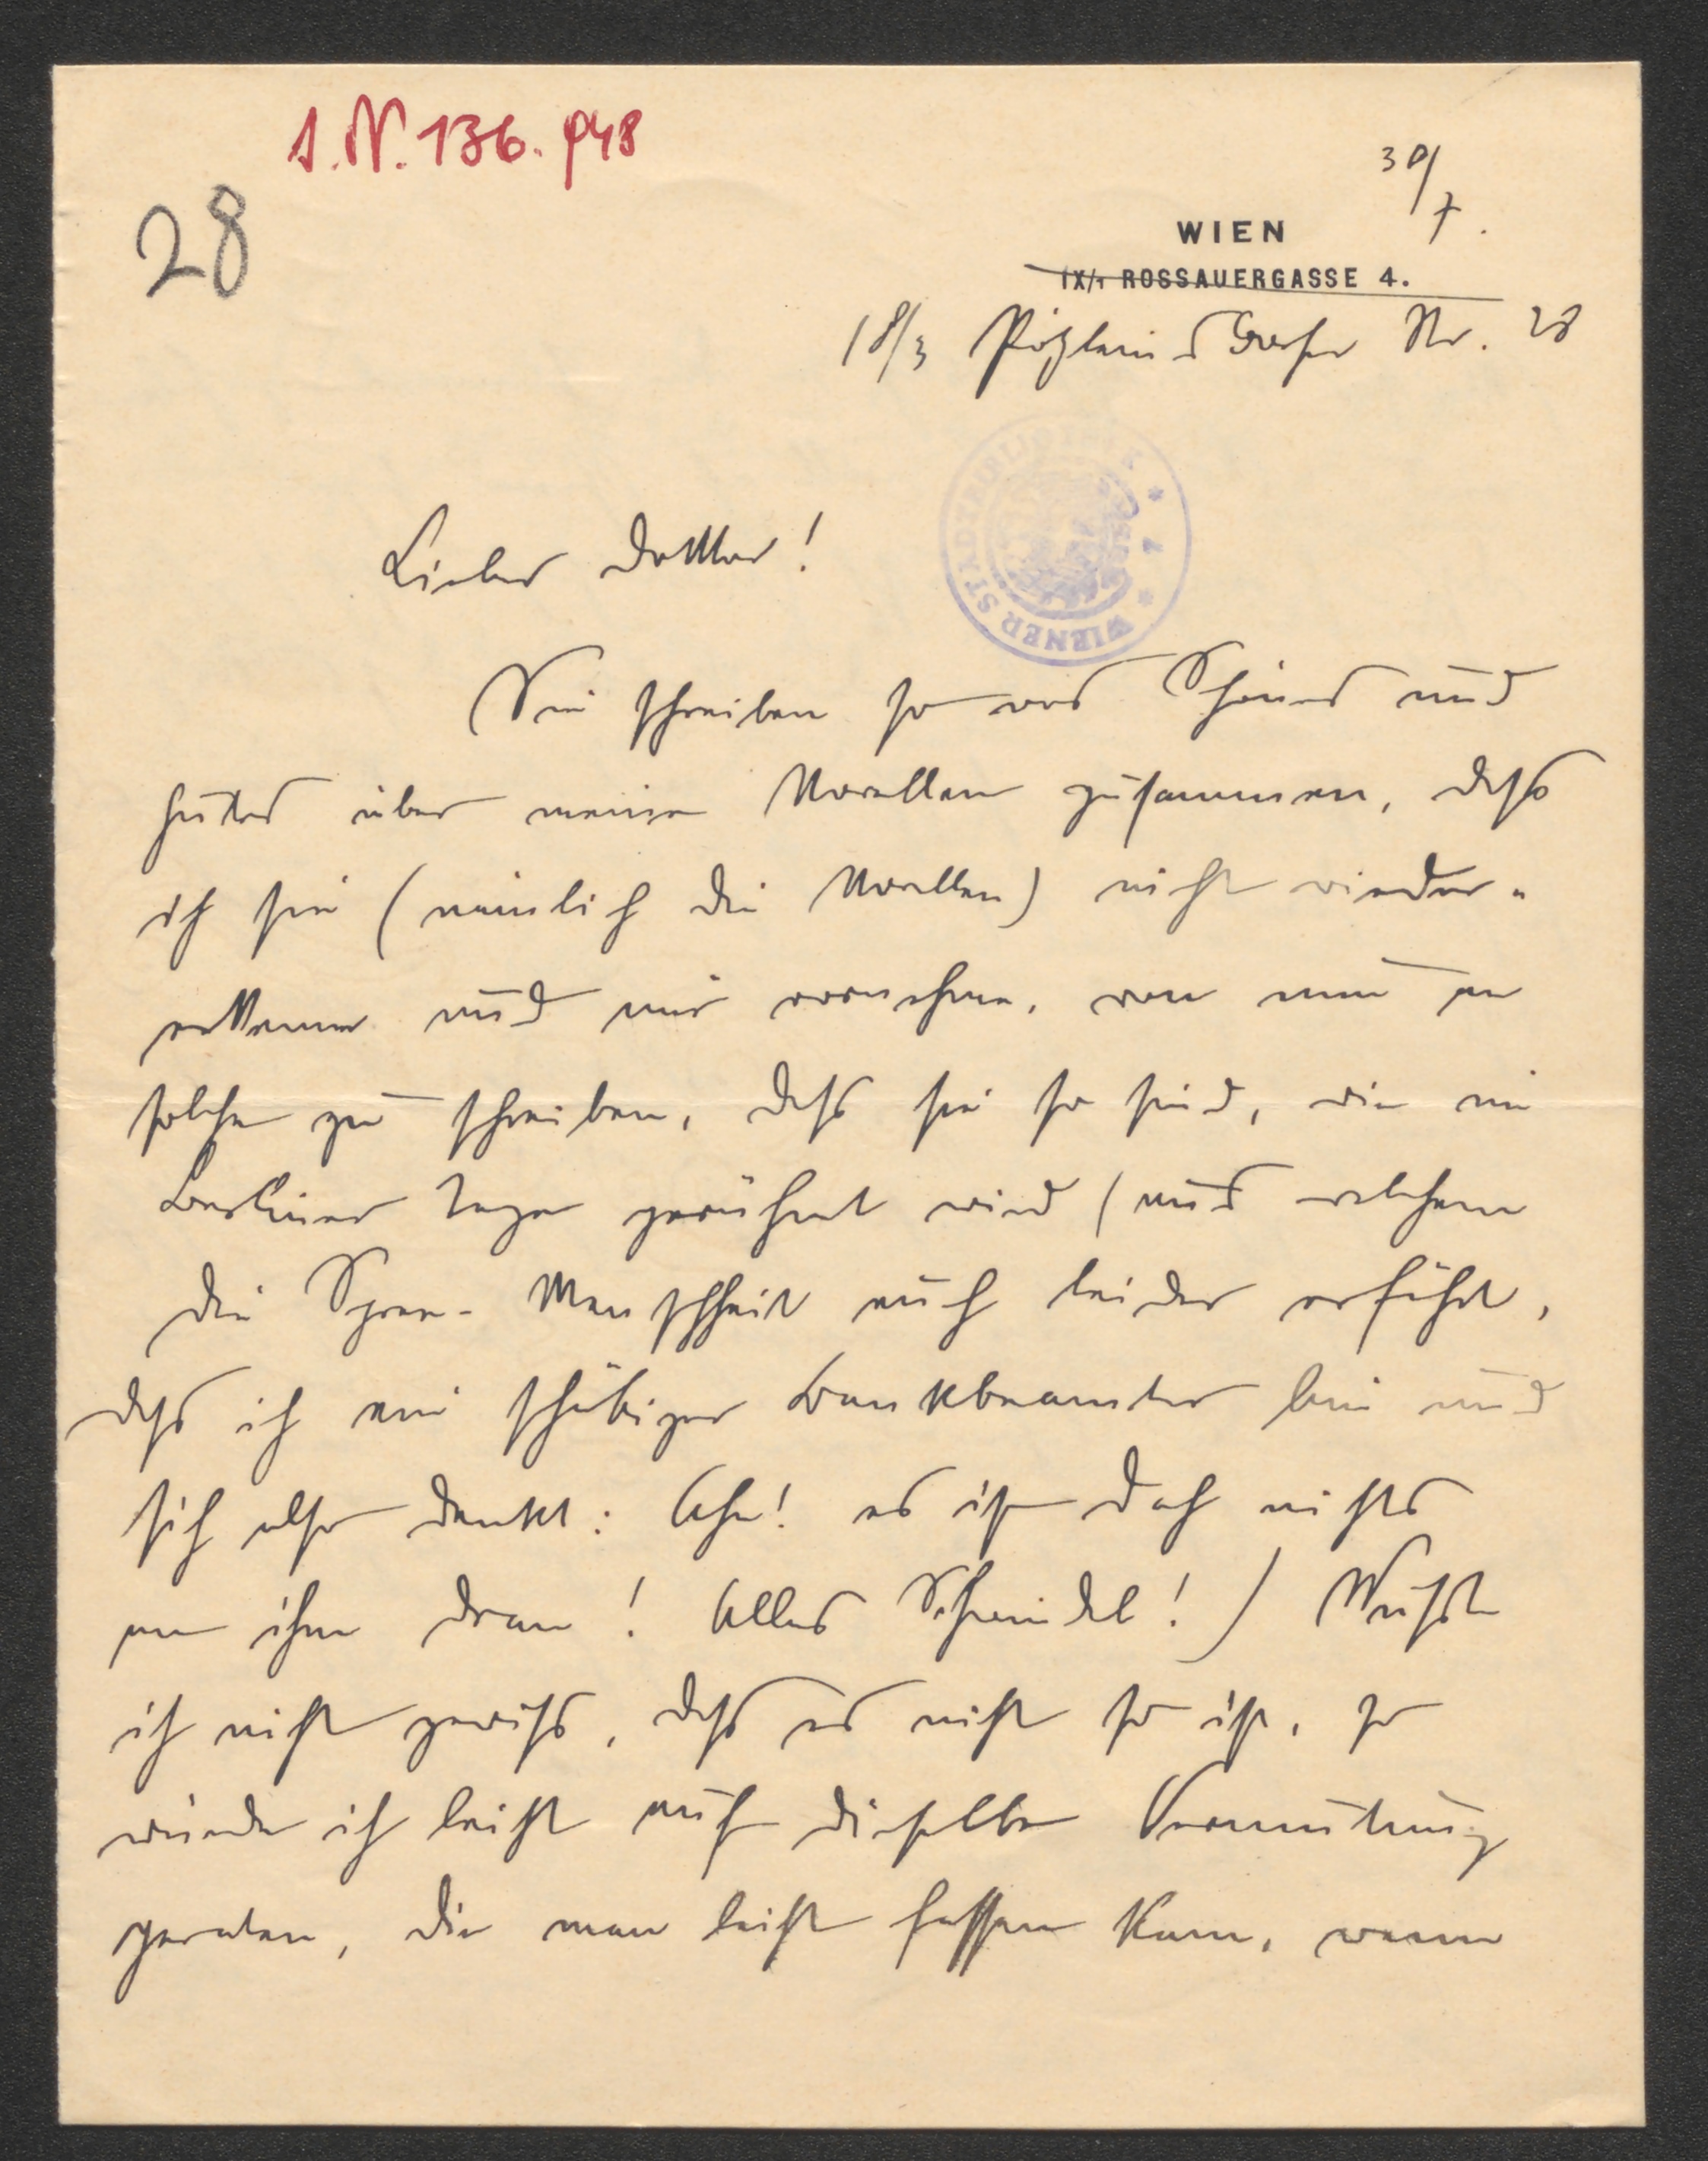 I.N. 136.948
28
30/7.
WIEN
IX/1 ROSSAUERGASSE 4.
18/3 Pötzleinsdorfer Str. 28
WIENER STADTBIBLIOTHEK
Lieber Doktor!
Sie schreiben so was Schönes und
Gutes über meine Novellen zusammen, dass
ich sie (nämlich die Novellen) nicht wieder-
erkenne und mir vornehme, von nun an
solche zu schreiben, dass sie so sind, wie im
Berliner Tage gerühmt wird (aus welchem
die Spree-Menschheit auch leider erfährt,
dass ich ein schäbiger Bankbeamter bin und
sich also denkt: Aha! es ist doch nichts
an ihm dran! Alles Schwindel!) Wüsste
ich nicht gewiss, dass es nicht so ist, so
würde ich leicht auf dieselbe Vermutung
geraten, die man leicht fassen kann, wenn